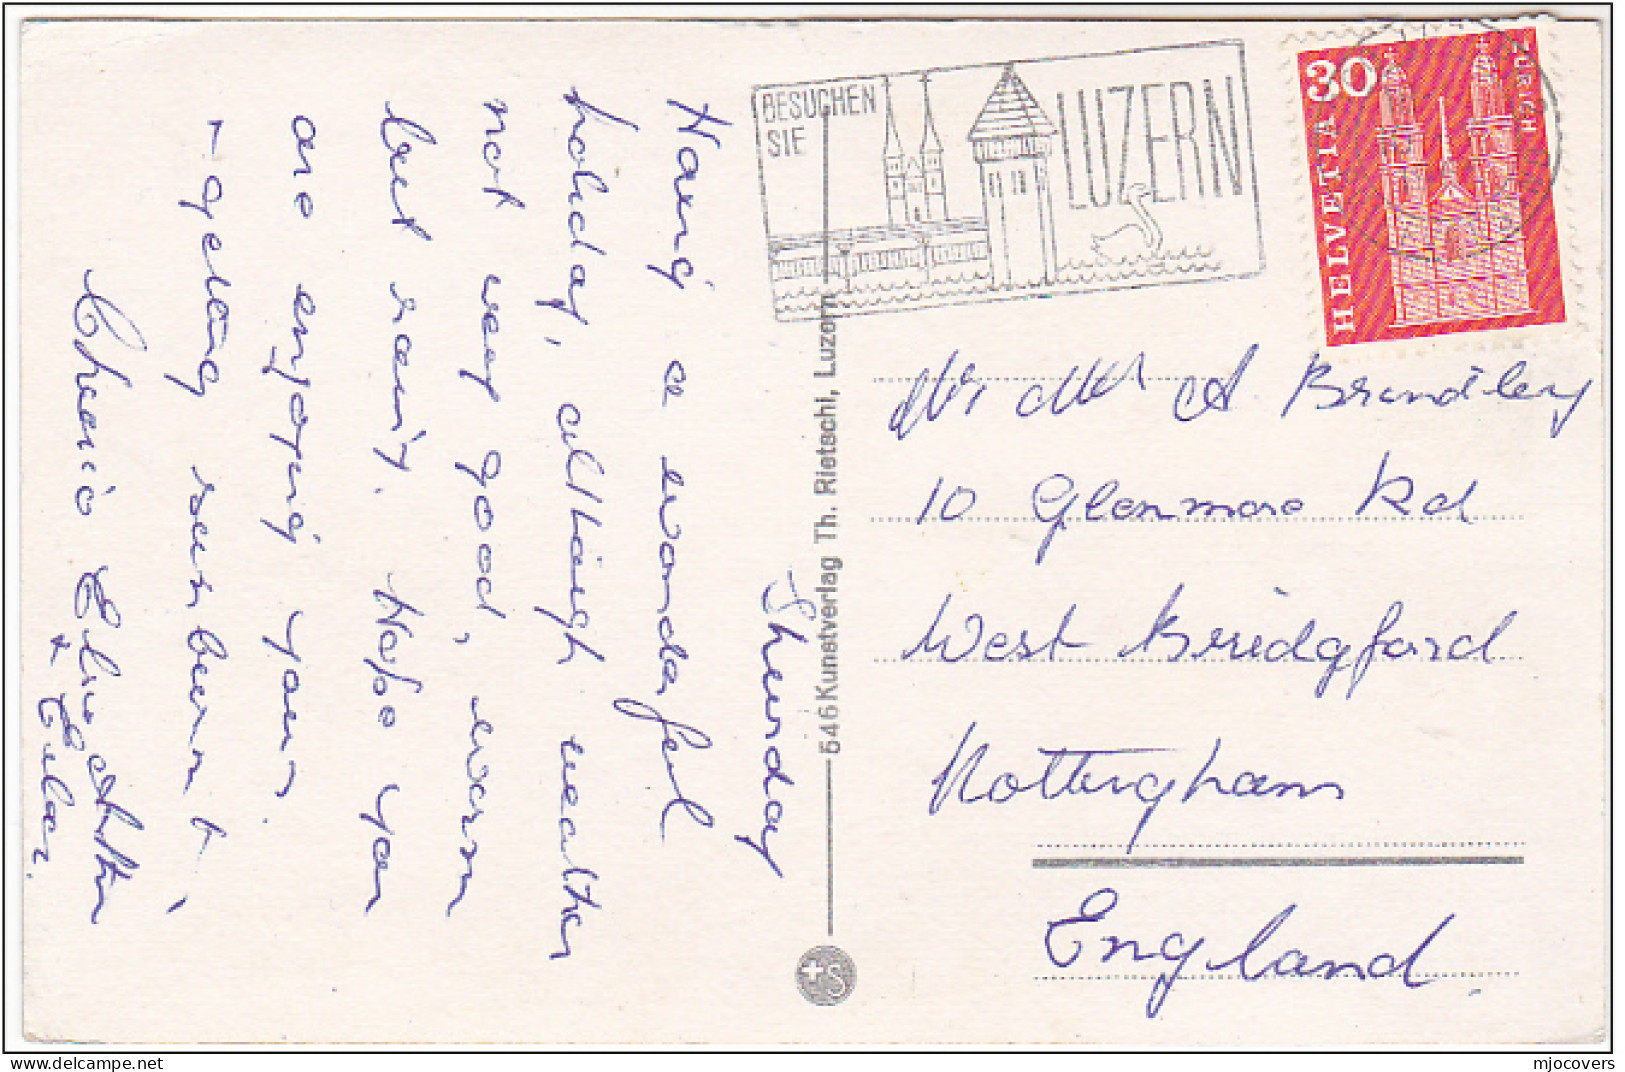 Thursday
Having a wonderful
holiday, although weather
not very good, warm
but rainy. Hope you
are enjoying yours.
+ getting sunburnt,
Cheerio
BESUCHEN
SIE
LUZERN
30
HELVETIA
ZÜRICH
Mr & Mrs A Brindley
10 Glenmore Rd
West Bridgford
Nottingham
England.
546 Kunstverlag Th. Rietschi, Luzern
+S
mjocovers